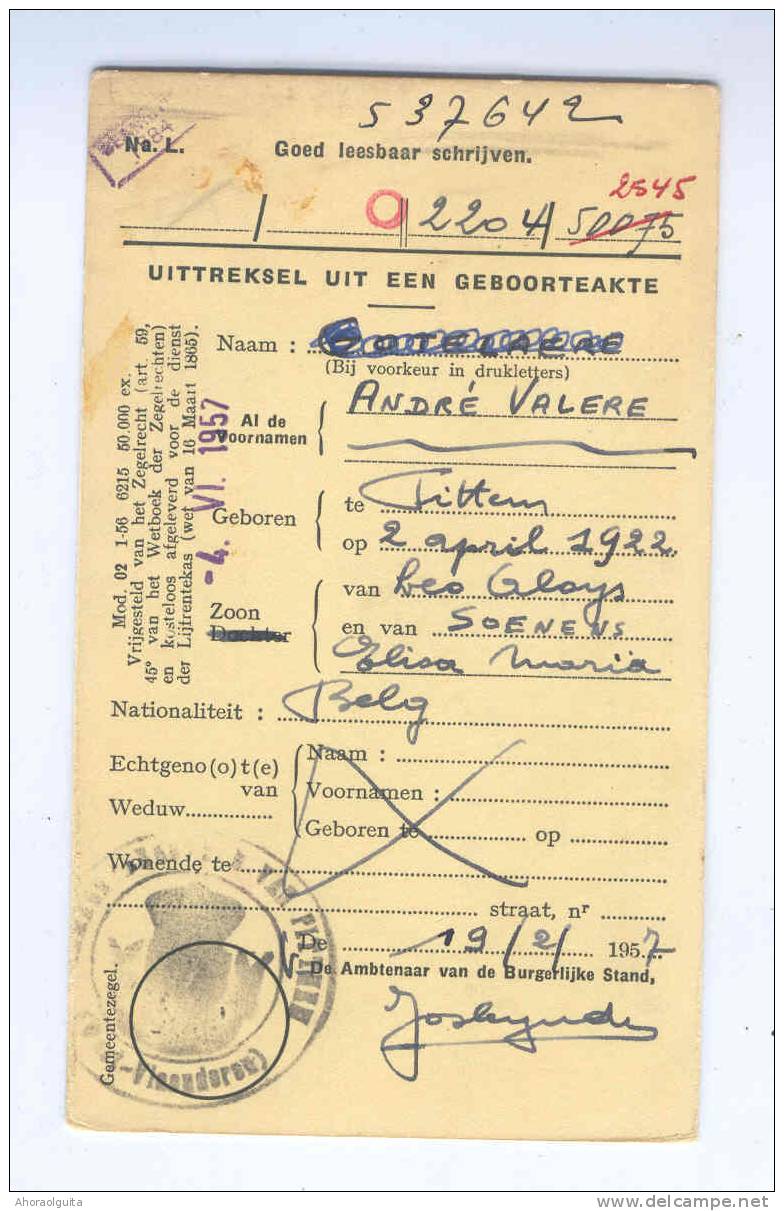 537642
Na. L. Goed leesbaar schrijven.
2545
/ 2204/ 50075
UITTREKSEL UIT EEN GEBOORTEAKTE
Naam :
(Bij voorkeur in drukletters)
Al de Voornamen
ANDRÉ VALERE
Geboren
te Pittem
op 2 april 1922
Zoon
Dochter
van Leo Aloys
en van SOENENS
Elisa Maria
Nationaliteit : Belg
Echtgeno(o)t(e)
van
Weduw
Naam :
Voornamen :
Geboren te op
Wonende te
straat, nr
De 19/2/ 1957
De Ambtenaar van de Burgerlijke Stand,
Gemeentezegel.
-Vlaanderen)
Mod. 02 1-56 6215 50.000 ex.
Vrijgesteld van het Zegelrecht (art. 59,
45° van het Wetboek der Zegelrechten)
en kosteloos afgeleverd voor de dienst
der Lijfrentekas (wet van 16 Maart 1865).
-4. VI. 1957
Ahoraolguita
delcampe.net